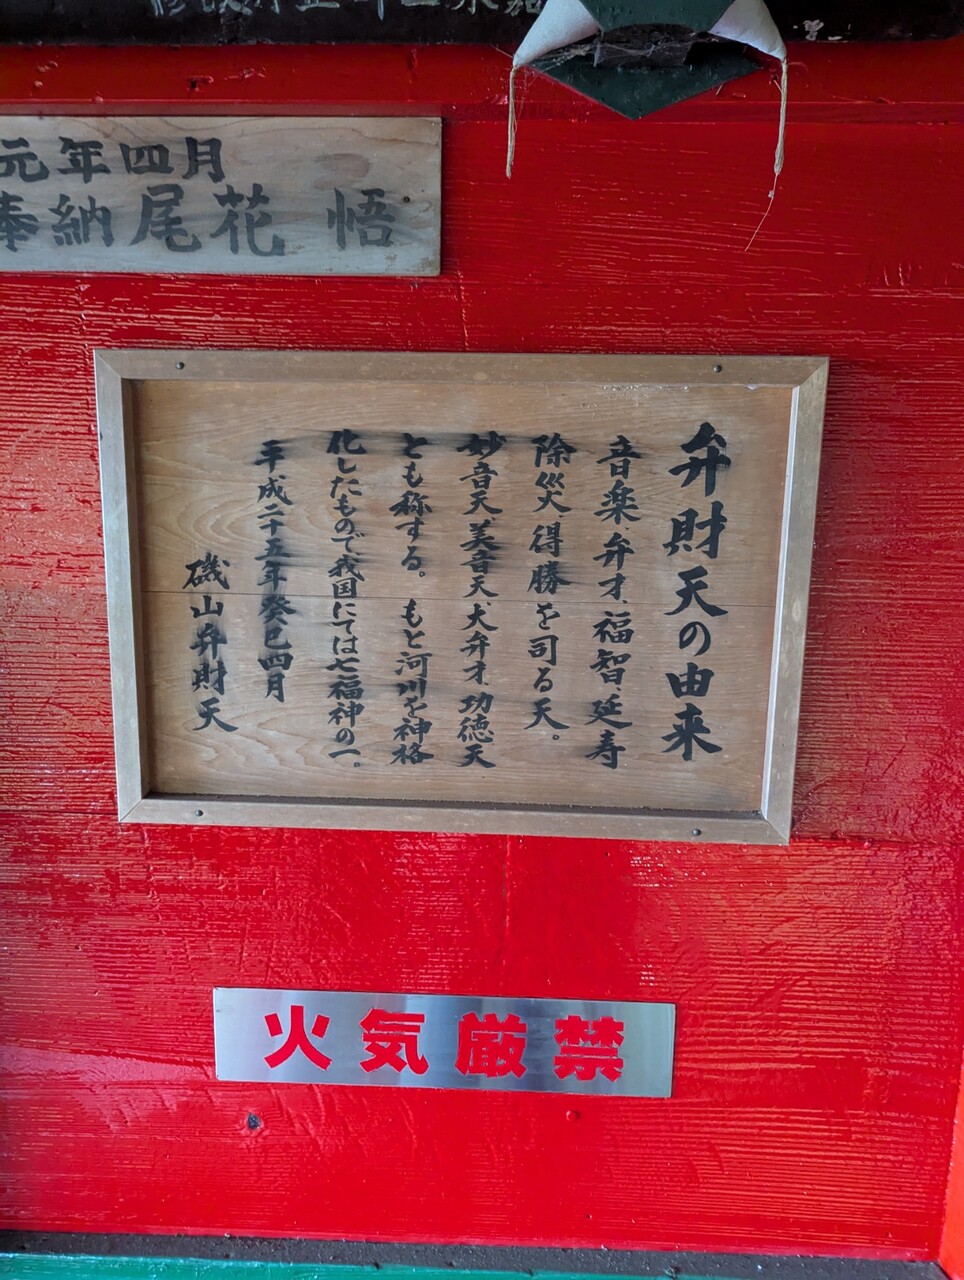 元年四月
奉納尾花 悟
弁財天の由来
音楽、弁才、福智、延寿
除災、得勝を司る天。
妙音天、美音天、大弁才、功徳天
とも称する。もと河川を神格
化したもので、我国にては七福神の一。
平成二十五年癸巳四月
磯山弁財天
火気厳禁